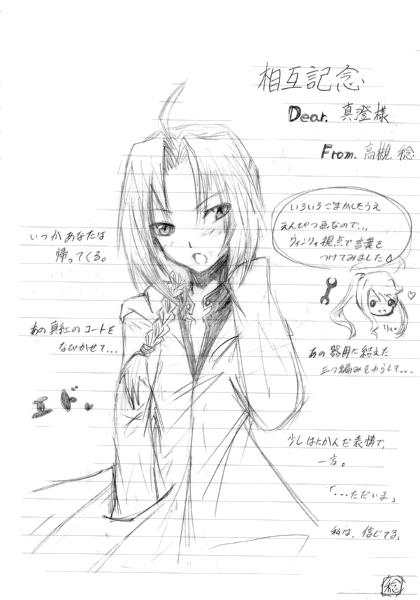 相互記念
Dear. 真澄様
From. 高槻 稔
いろいろごまかしたうえ
えんぴつ画なので…
ウィンリィ視点で言葉を
つけてみました
いつかあなたは
帰ってくる。
あの真紅のコートを
なびかせて…
エド。
あの器用に結えた
三つ編みをゆらして…
少しはにかんだ表情で、
一言。
「…ただいま」
私は、信じてる。
稔